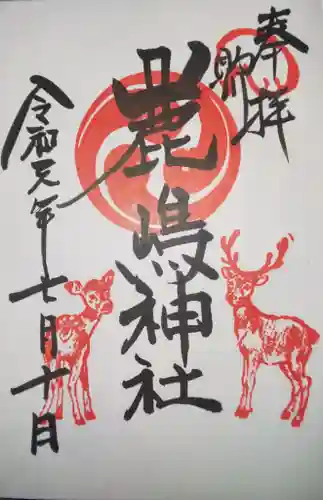 奉拝
鹿嶋神社
令和元年七月十日